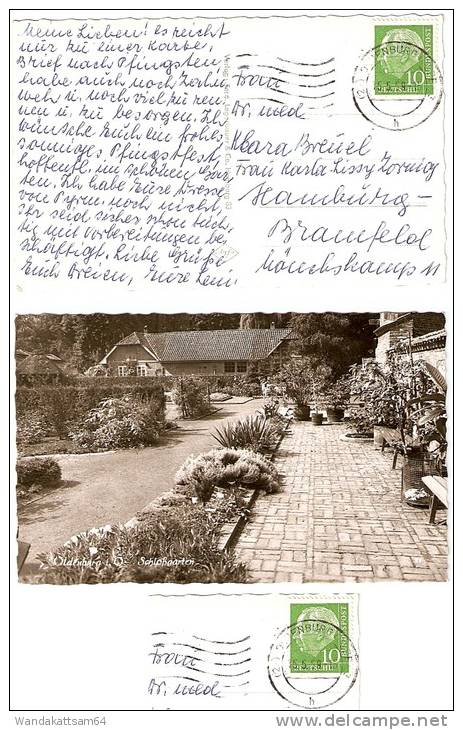 Meine Lieben! es reicht
nur zu einer Karte,
Brief nach Pfingsten,
habe auch noch Zahn
weh u. noch viel zu ren
nen u. zu besorgen. Ich
wünsche Euch ein frohes
sonniges Pfingstfest,
hoffentl. im schönen Gar
ten. Ich habe Eure Adresse
von Pyrm. noch nicht,
Ihr seid sicher schon tüch
tig mit Vorbereitungen be
schäftigt. Liebe Grüße
Euch Dreien, Eure Leni.
Frau
Dr. med
Klara Breuel
Frau Karla Lissy Zornig
Hamburg-
Bramfeld
Mönchskamp 11
10
DEUTSCHE
BUNDESPOST
OLDENBURG
h
Oldenburg i. O. Schloßgarten
Frau
Dr. med
10
DEUTSCHE
BUNDESPOST
OLDENBURG
h
Wandakattsam64